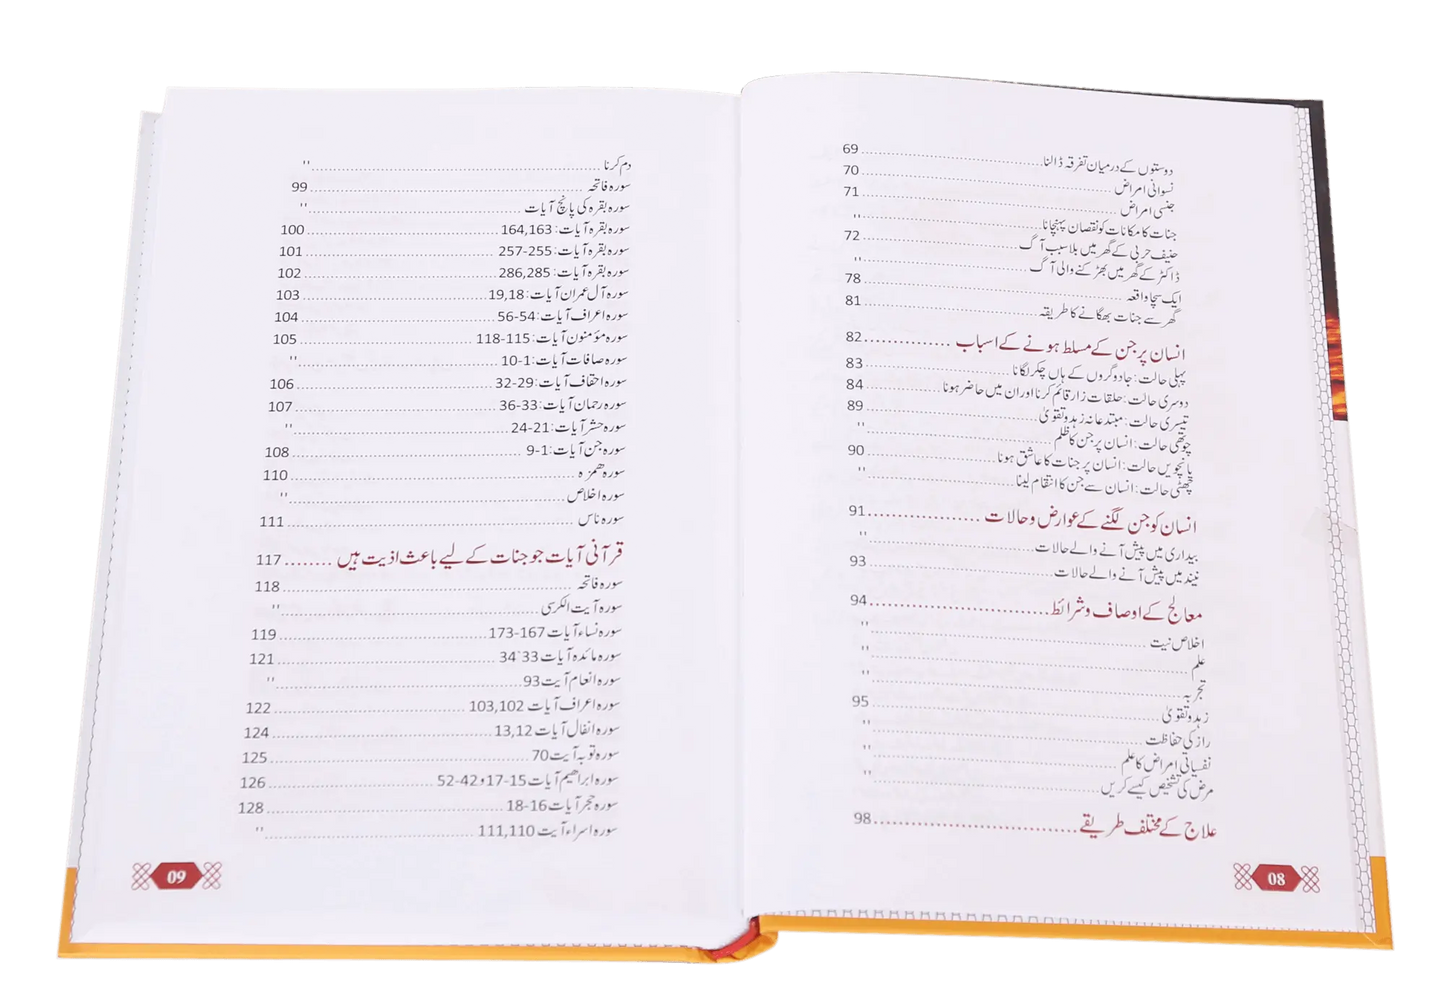 دوستوں کے درمیان تفرقہ ڈالنا ........ 69
نسوانی امراض ........ 70
جنسی امراض ........ 71
جنات کا مکانات کو نقصان پہنچانا ........ "
حنیف حربی کے گھر میں بلا سبب آگ ........ 72
ڈاکٹر کے گھر میں بھڑکنے والی آگ ........ "
ایک سچا واقعہ ........ 78
گھر سے جنات بھگانے کا طریقہ ........ 81
انسان پر جن کے مسلط ہونے کے اسباب ........ 82
پہلی حالت: جادوگروں کے ہاں چکر لگانا ........ 83
دوسری حالت: حلقات زار قائم کرنا اور ان میں حاضر ہونا ........ 84
تیسری حالت: مبتدعانہ زہد و تقویٰ ........ 89
چوتھی حالت: انسان پر جن کا ظلم ........ "
پانچویں حالت: انسان پر جنات کا عاشق ہونا ........ 90
چھٹی حالت: انسان سے جن کا انتقام لینا ........ "
انسان کو جن لگنے کے عوارض و حالات ........ 91
بیداری میں پیش آنے والے حالات ........ "
نیند میں پیش آنے والے حالات ........ 93
معالج کے اوصاف و شرائط ........ 94
اخلاص نیت ........ "
علم ........ "
تجربہ ........ "
زہد و تقویٰ ........ 95
راز کی حفاظت ........ "
نفسیاتی امراض کا علم ........ "
مرض کی تشخیص کیسے کریں ........ "
علاج کے مختلف طریقے ........ 98
08
دم کرنا ........ "
سورہ فاتحہ ........ 99
سورہ بقرہ کی پانچ آیات ........ "
سورہ بقرہ آیات: 164,163 ........ 100
سورہ بقرہ آیات: 255-257 ........ 101
سورہ بقرہ آیات: 286,285 ........ 102
سورہ آل عمران آیات: 19,18 ........ 103
سورہ اعراف آیات: 54-56 ........ 104
سورہ مؤمنون آیات: 115-118 ........ 105
سورہ صافات آیات: 1-10 ........ "
سورہ احقاف آیات: 29-32 ........ 106
سورہ رحمان آیات: 33-36 ........ 107
سورہ حشر آیات: 21-24 ........ "
سورہ جن آیات: 1-9 ........ 108
سورہ ھمزہ ........ 110
سورہ اخلاص ........ "
سورہ ناس ........ 111
قرآنی آیات جو جنات کے لیے باعث اذیت ہیں ........ 117
سورہ فاتحہ ........ 118
سورہ آیت الکرسی ........ "
سورہ نساء آیات 167-173 ........ 119
سورہ مائدہ آیات 33-34 ........ 121
سورہ انعام آیت 93 ........ "
سورہ اعراف آیات 103,102 ........ 122
سورہ انفال آیات 13,12 ........ 124
سورہ توبہ آیت 70 ........ 125
سورہ ابراھیم آیات 15-17 و 42-52 ........ 126
سورہ حجر آیات 16-18 ........ 128
سورہ اسراء آیت 111,110 ........ "
09